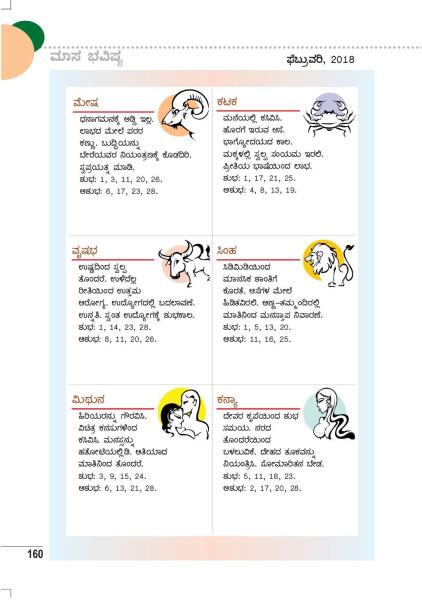 ಮಾಸ ಭವಿಷ್ಯ
ಫೆಬ್ರುವರಿ, 2018
ಮೇಷ
ಧನಾಗಮನಕ್ಕೆ ಅಡ್ಡಿ ಇಲ್ಲ.
ಲಾಭದ ಮೇಲೆ ಪರರ
ಕಣ್ಣು. ಬುದ್ಧಿಯನ್ನು
ಬೇರೆಯವರ ನಿಯಂತ್ರಣಕ್ಕೆ ಕೊಡದಿರಿ.
ಸ್ವಪ್ರಯತ್ನ ಮಾಡಿ.
ಶುಭ: 1, 3, 11, 20, 26.
ಅಶುಭ: 6, 17, 23, 28.
ಕಟಕ
ಮನೆಯಲ್ಲಿ ಕಸಿವಿಸಿ.
ಹೊರಗೆ ಇರುವ ಆಸೆ.
ಭಾಗ್ಯೋದಯದ ಕಾಲ.
ಮಕ್ಕಳಲ್ಲಿ ಸ್ವಲ್ಪ ಸಂಯಮ ಇರಲಿ.
ಪ್ರೀತಿಯ ಭಾಷೆಯಿಂದ ಲಾಭ.
ಶುಭ: 1, 17, 21, 25.
ಅಶುಭ: 4, 8, 13, 19.
ವೃಷಭ
ಉಷ್ಣದಿಂದ ಸ್ವಲ್ಪ
ತೊಂದರೆ. ಉಳಿದೆಲ್ಲ
ರೀತಿಯಿಂದ ಉತ್ತಮ
ಆರೋಗ್ಯ. ಉದ್ಯೋಗದಲ್ಲಿ ಬದಲಾವಣೆ.
ಉನ್ನತಿ. ಸ್ವಂತ ಉದ್ಯೋಗಕ್ಕೆ ಶುಭಕಾಲ.
ಶುಭ: 1, 14, 23, 28.
ಅಶುಭ: 8, 11, 20, 26.
ಸಿಂಹ
ಸಿಡಿಮಿಡಿಯಿಂದ
ಮಾನಸಿಕ ಶಾಂತಿಗೆ
ಕೊರತೆ. ಆಸೆಗಳ ಮೇಲೆ
ಹಿಡಿತವಿರಲಿ. ಅಣ್ಣ-ತಮ್ಮಂದಿರಲ್ಲಿ
ಮಾತಿನಿಂದ ಮನಸ್ತಾಪ ನಿವಾರಣೆ.
ಶುಭ: 1, 5, 13, 20.
ಅಶುಭ: 11, 16, 25.
ಮಿಥುನ
ಹಿರಿಯರನ್ನು ಗೌರವಿಸಿ.
ವಿಚಿತ್ರ ಕನಸುಗಳಿಂದ
ಕಸಿವಿಸಿ. ಮನಸ್ಸನ್ನು
ಹತೋಟಿಯಲ್ಲಿಡಿ. ಅತಿಯಾದ
ಮಾತಿನಿಂದ ತೊಂದರೆ.
ಶುಭ: 3, 9, 15, 24.
ಅಶುಭ: 6, 13, 21, 28.
ಕನ್ಯಾ
ದೇವರ ಕೃಪೆಯಿಂದ ಶುಭ
ಸಮಯ. ನರದ
ತೊಂದರೆಯಿಂದ
ಬಳಲುವಿಕೆ. ದೇಹದ ತೂಕವನ್ನು
ನಿಯಂತ್ರಿಸಿ. ಸೋಮಾರಿತನ ಬೇಡ.
ಶುಭ: 5, 11, 18, 23.
ಅಶುಭ: 2, 17, 20, 28.
160